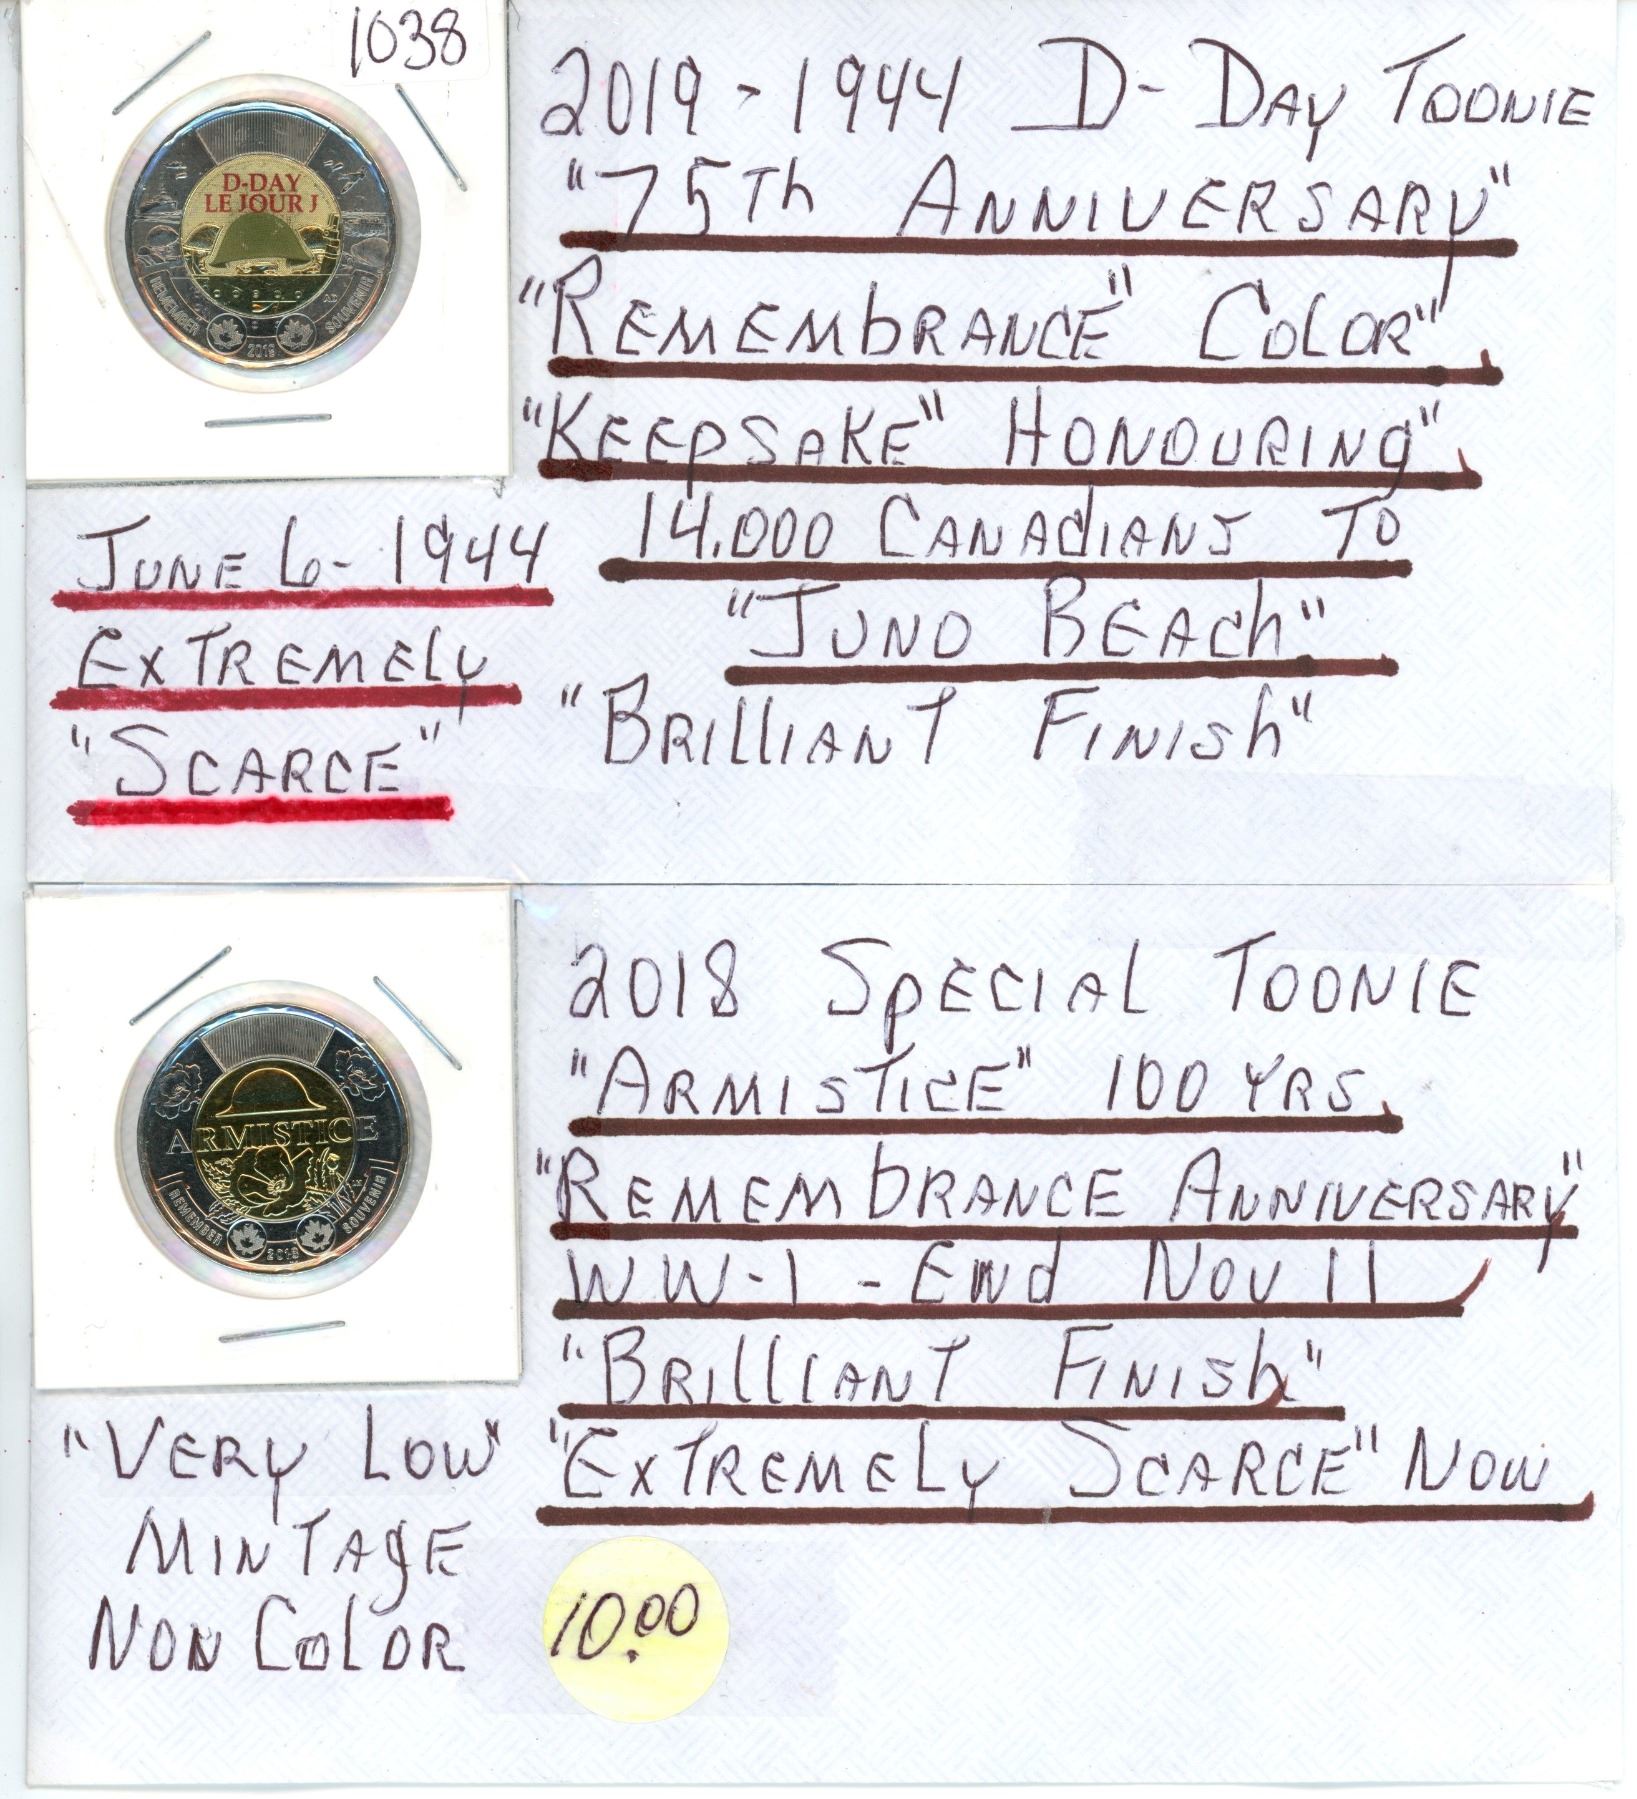 1038
D-DAY
LE JOUR J
REMEMBER
SOUVENIR
2019
2019 - 1944 D-DAY TOONIE
"75Th ANNIVERSARY"
"REMEMbRANCE" COLOR"
"KEEPSAKE" HONOURING"
14.000 CANAdIANS TO
"JUNO BEACh"
"BRILLIANT FINISh"
JUNE 6-1944
ExTREMELy
"SCARCE"
ARMISTICE
REMEMBER
SOUVENIR
2018
2018 SpECIAL TOONIE
"ARMISTICE" 100 YRS.
"REMEMbRANCE ANNIVERSARY"
WW-1 - ENd NOV 11
"BRILLIANT FINISh"
"ExTREMELy SCARCE" NOW
"VERY LOW"
MINTAgE
NON COLOR
10.00